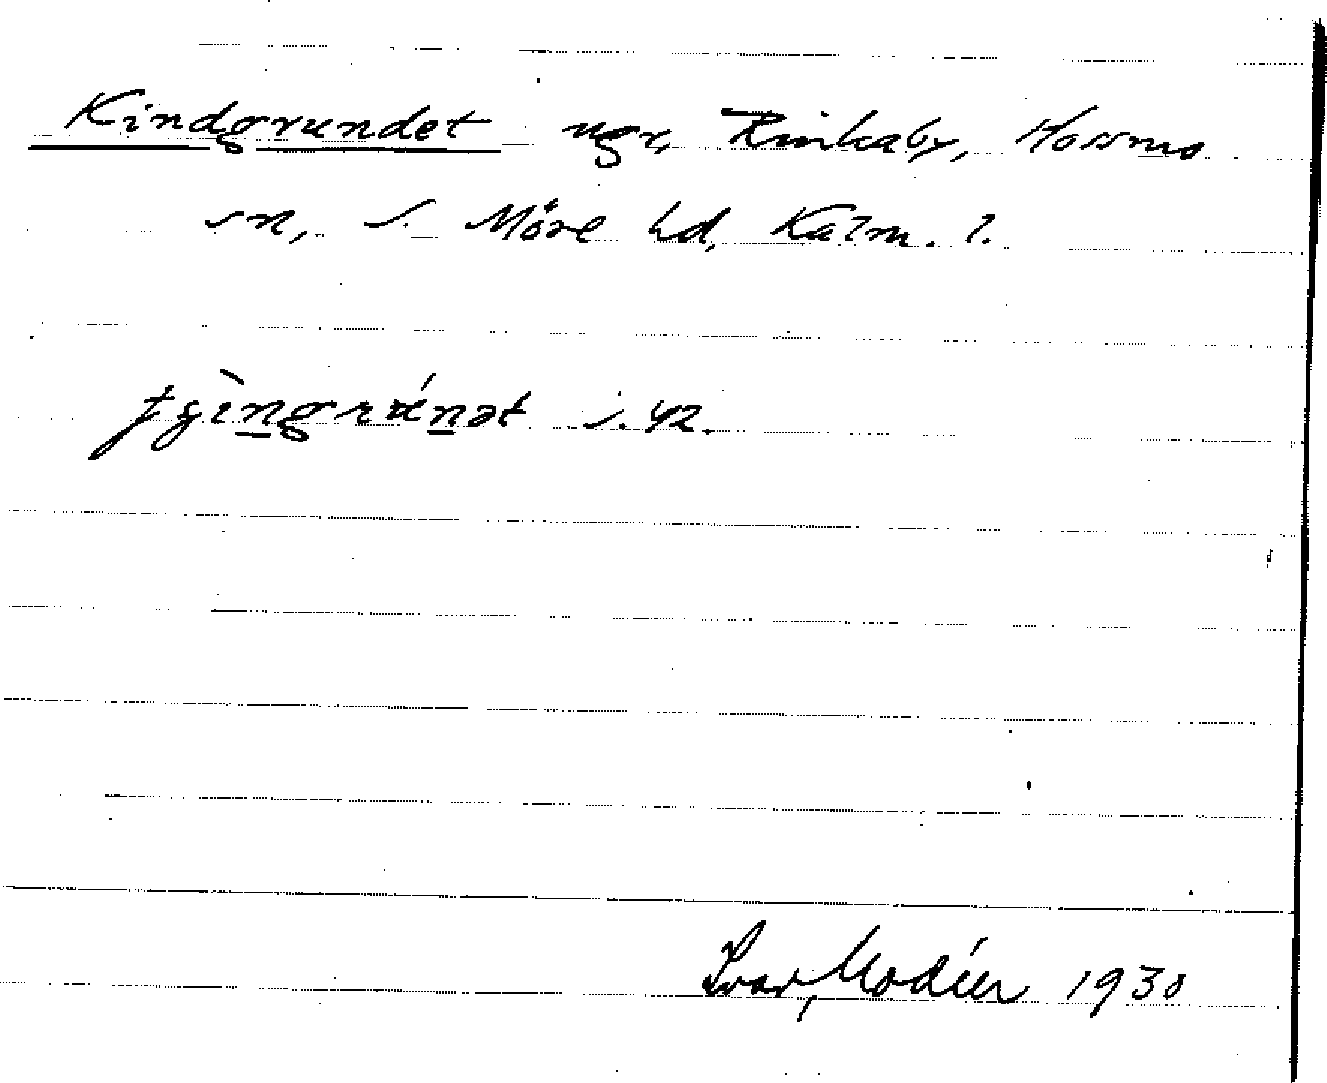 Kindgrundet ugr, Rinkaby, Hossmo
sn, S. Möre hd, Kalm. l.
i. 42.
Ivar Modéer 1930